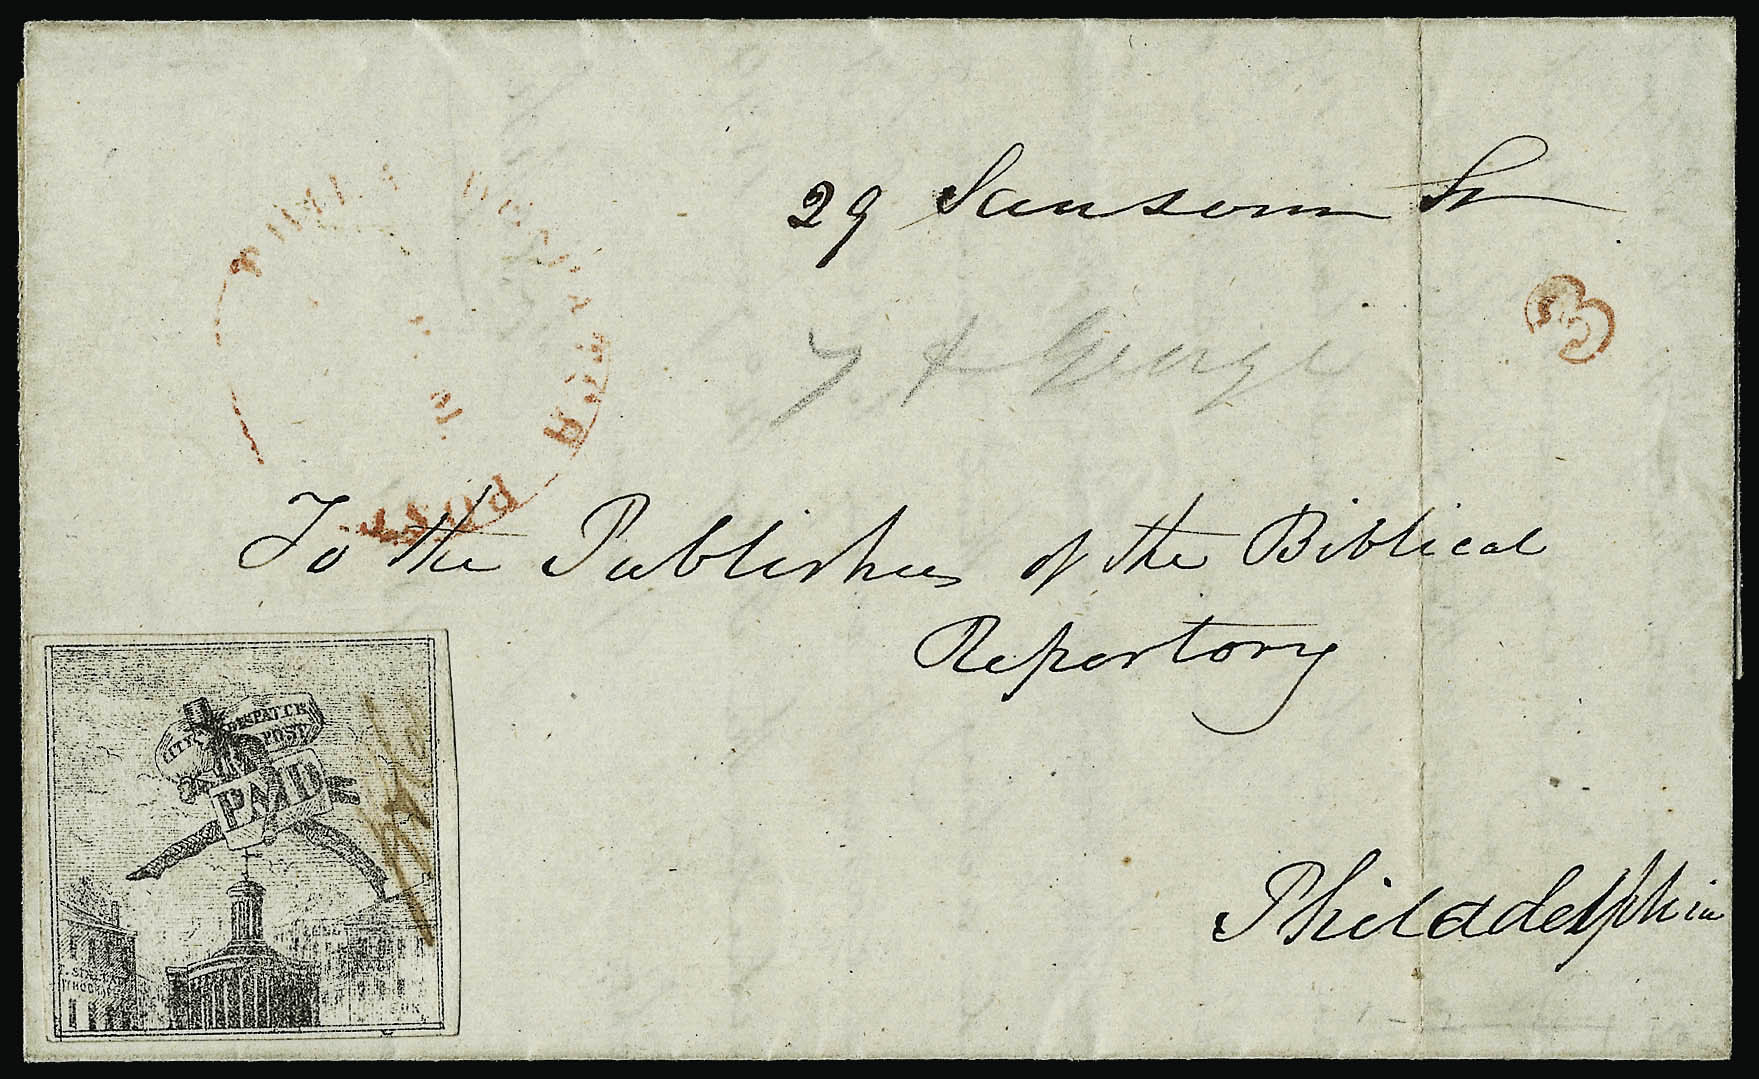 29 Sansom St
7 & George
3
PHILA DESPATCH POST
To the Publishers of the Biblical
Repertory
CITY DESPATCH
POST
PAID
Philadelphia